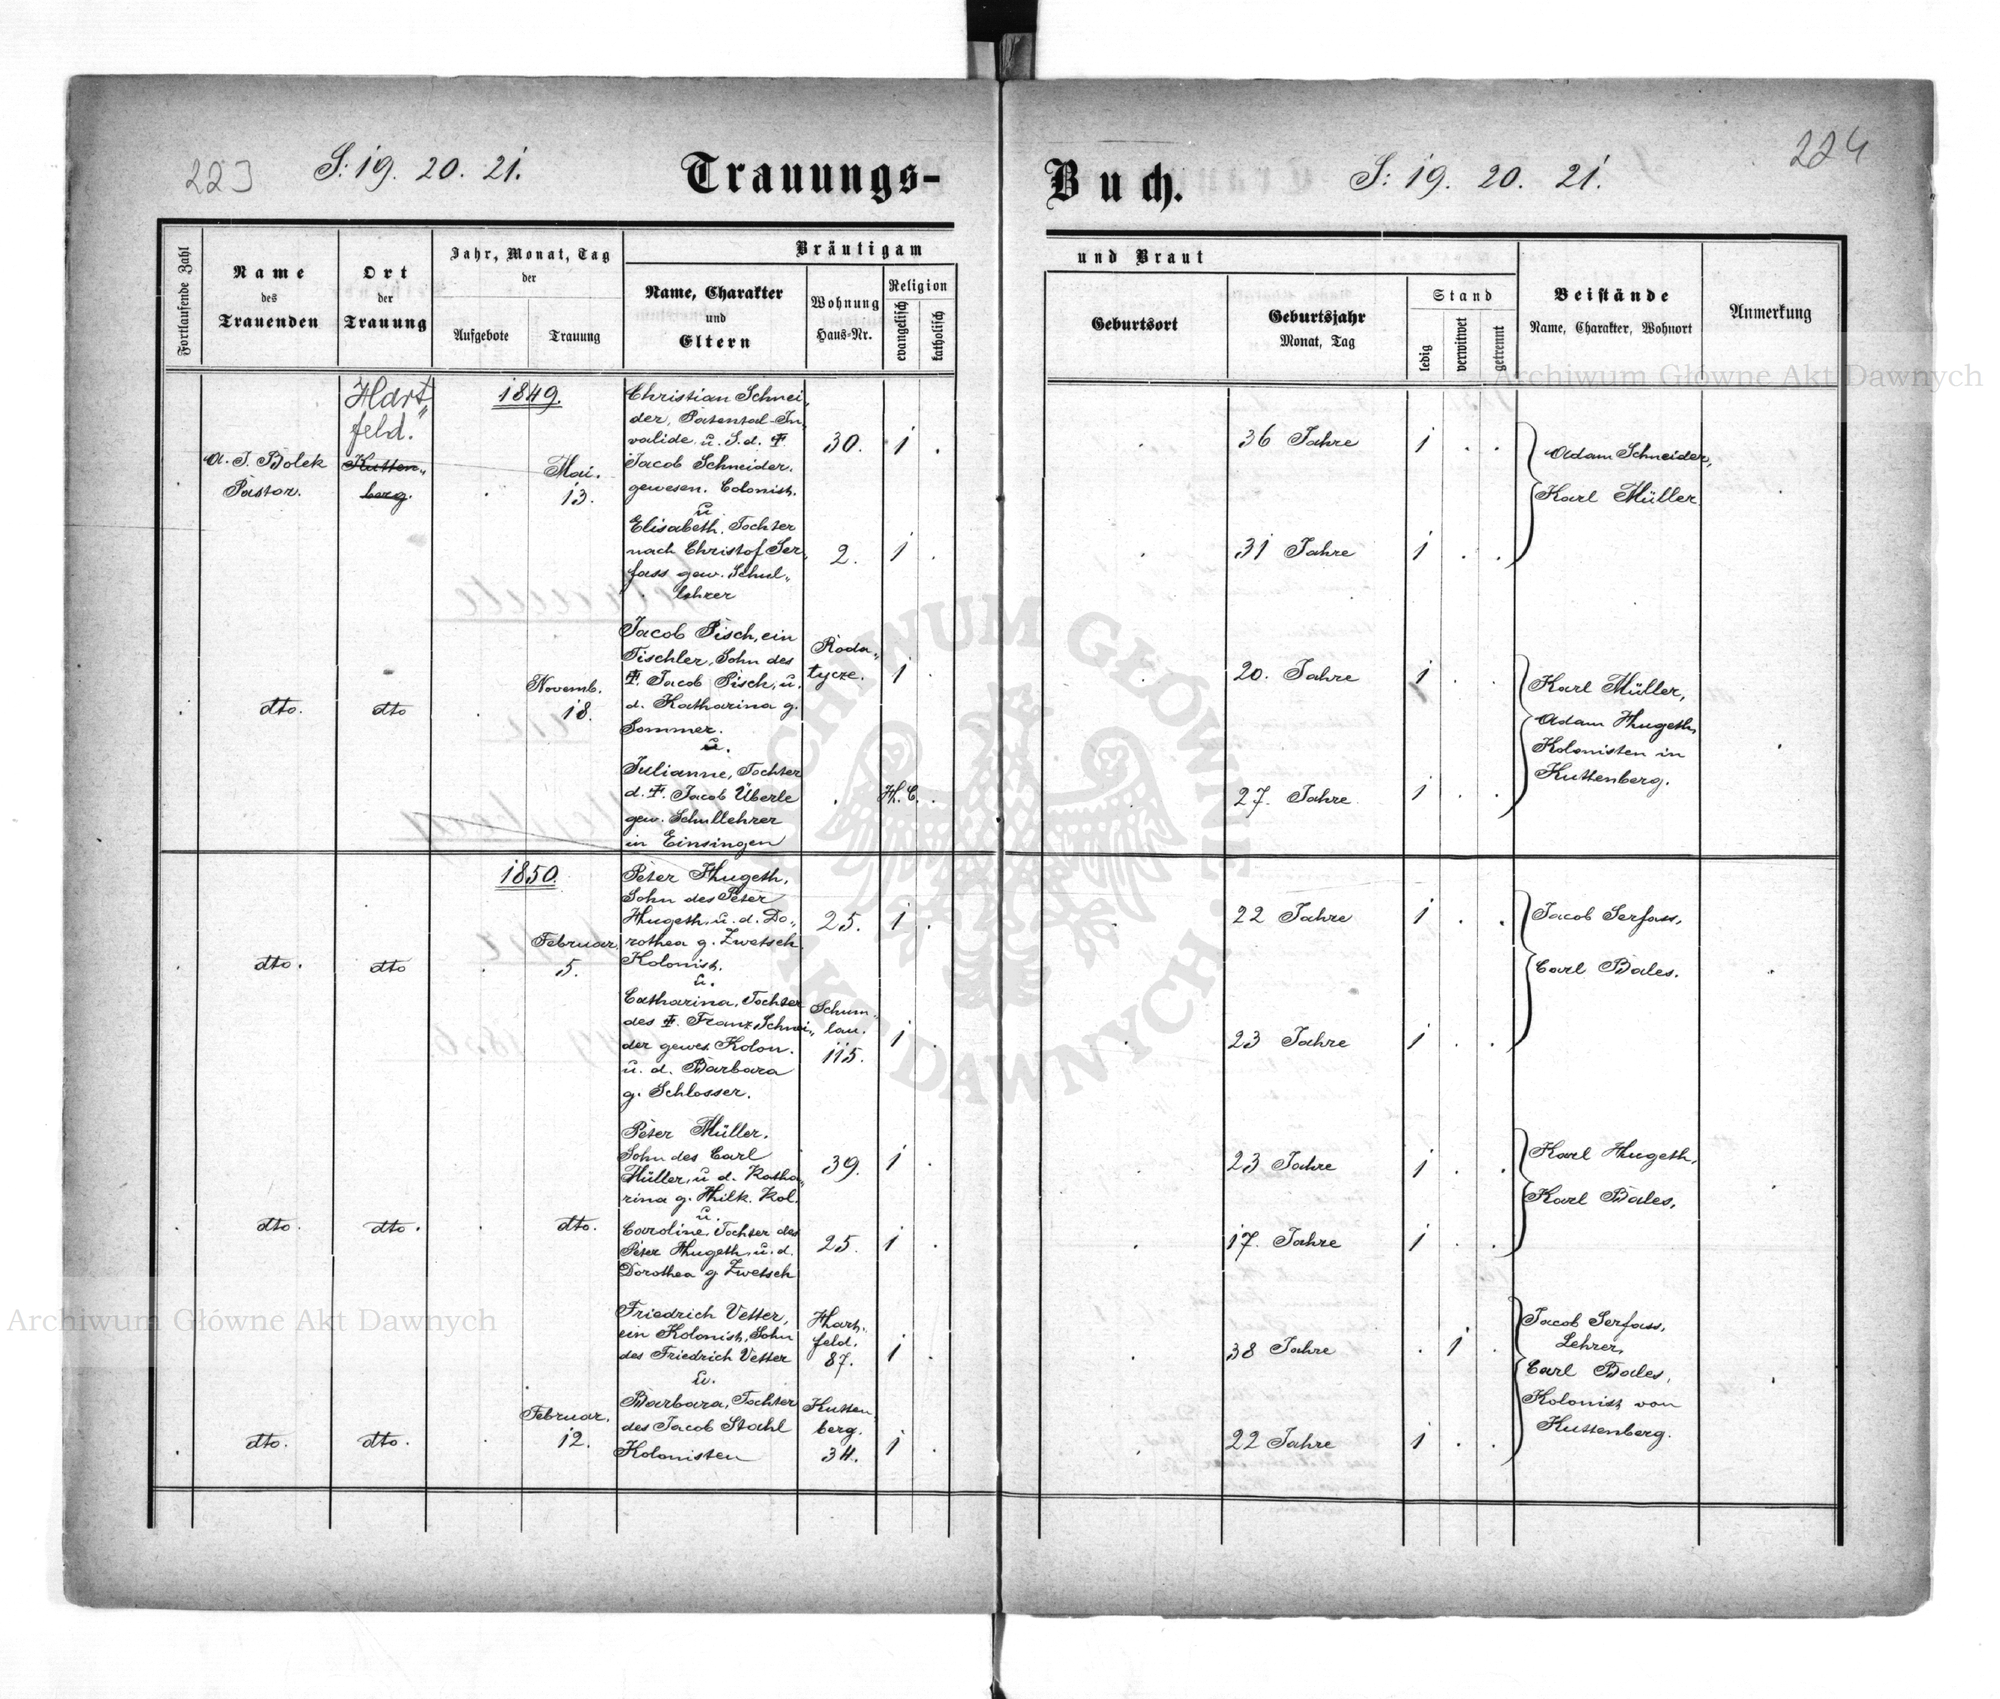 223
S: 19. 20. 21.
Trauungs-
Buch.
S: 19. 20. 21.
224
Fortlaufende Zahl
Name
des
Trauenden
Ort
der
Trauung
Jahr, Monat, Tag
der
Aufgebote
Trauung
Bräutigam
Name, Charakter
und
Eltern
Wohnung
Haus-Nr.
Religion
evangelisch
katholisch
und Braut
Geburtsort
Geburtsjahr
Monat, Tag
Stand
ledig
verwitwet
getrennt
Beistände
Name, Charakter, Wohnort
Anmerkung
A. J. Bolek
Pastor.
Hart„
feld.
Kutten„
berg.
1849.
Mai.
13.
Christian Schnei„
der, Patental-In„
valide, u. S. d. †
Jacob Schneider.
gewesen. Colonist.
u
Elisabeth. Tochter
nach Christof Ser„
fass gew. Schul„
lehrer
30. 1 .
2. 1 .
36 Jahre 1 . .
31 Jahre 1 . .
Adam Schneider,
Karl Müller
dto. dto
Novemb.
18.
Jacob Pisch, ein
Tischler, Sohn des
†. Jacob Pisch, u.
d. Katharina g.
Sommer.
u.
Julianne, Tochter
d. †. Jacob Überle
gew. Schullehrer
in Einsingen
Roda„
tycze. 1 .
. H. C. .
20. Jahre 1 . .
27. Jahre 1 . .
Karl Müller,
Adam Hugeth,
Kolonisten in
Kuttenberg.
1850.
dto. dto
Februar.
5.
Peter Hugeth,
Sohn des Peter
Hugeth, u. d. Do„
rothea g. Zwetsch
Kolonist.
u.
Catharina, Tochter
des †. Franz Schnei„
der gewes. Kolon.
u. d. Barbara
g. Schlosser.
25. 1 .
Schum„
lau.
115. 1 .
22 Jahre 1 . .
23 Jahre 1 . .
Jacob Serfass,
Carl Bales.
dto. dto. dto.
Peter Müller.
Sohn des Carl
Müller, u d. Katha„
rina g. Hilk. Kol.
u.
Caroline, Tochter des
Peter Hugeth, u. d.
Dorothea g Zwetsch
39. 1 .
25. 1 .
23 Jahre 1 . .
17. Jahre 1 . .
Karl Hugeth,
Karl Bales,
dto. dto.
Februar.
12.
Friedrich Vetter,
ein Kolonist, Sohn
des Friedrich Vetter
u.
Barbara, Tochter
des Jacob Stahl
Kolonisten
Hart„
feld.
87. 1 .
Kutten„
berg.
34. 1 .
38 Jahre . 1 .
22 Jahre 1 . .
Jacob Serfass,
Lehrer,
Carl Bales,
Kolonist von
Kuttenberg.
Archiwum Główne Akt Dawnych
Archiwum Główne Akt Dawnych
ARCHIWUM GŁÓWNE AKT DAWNYCH